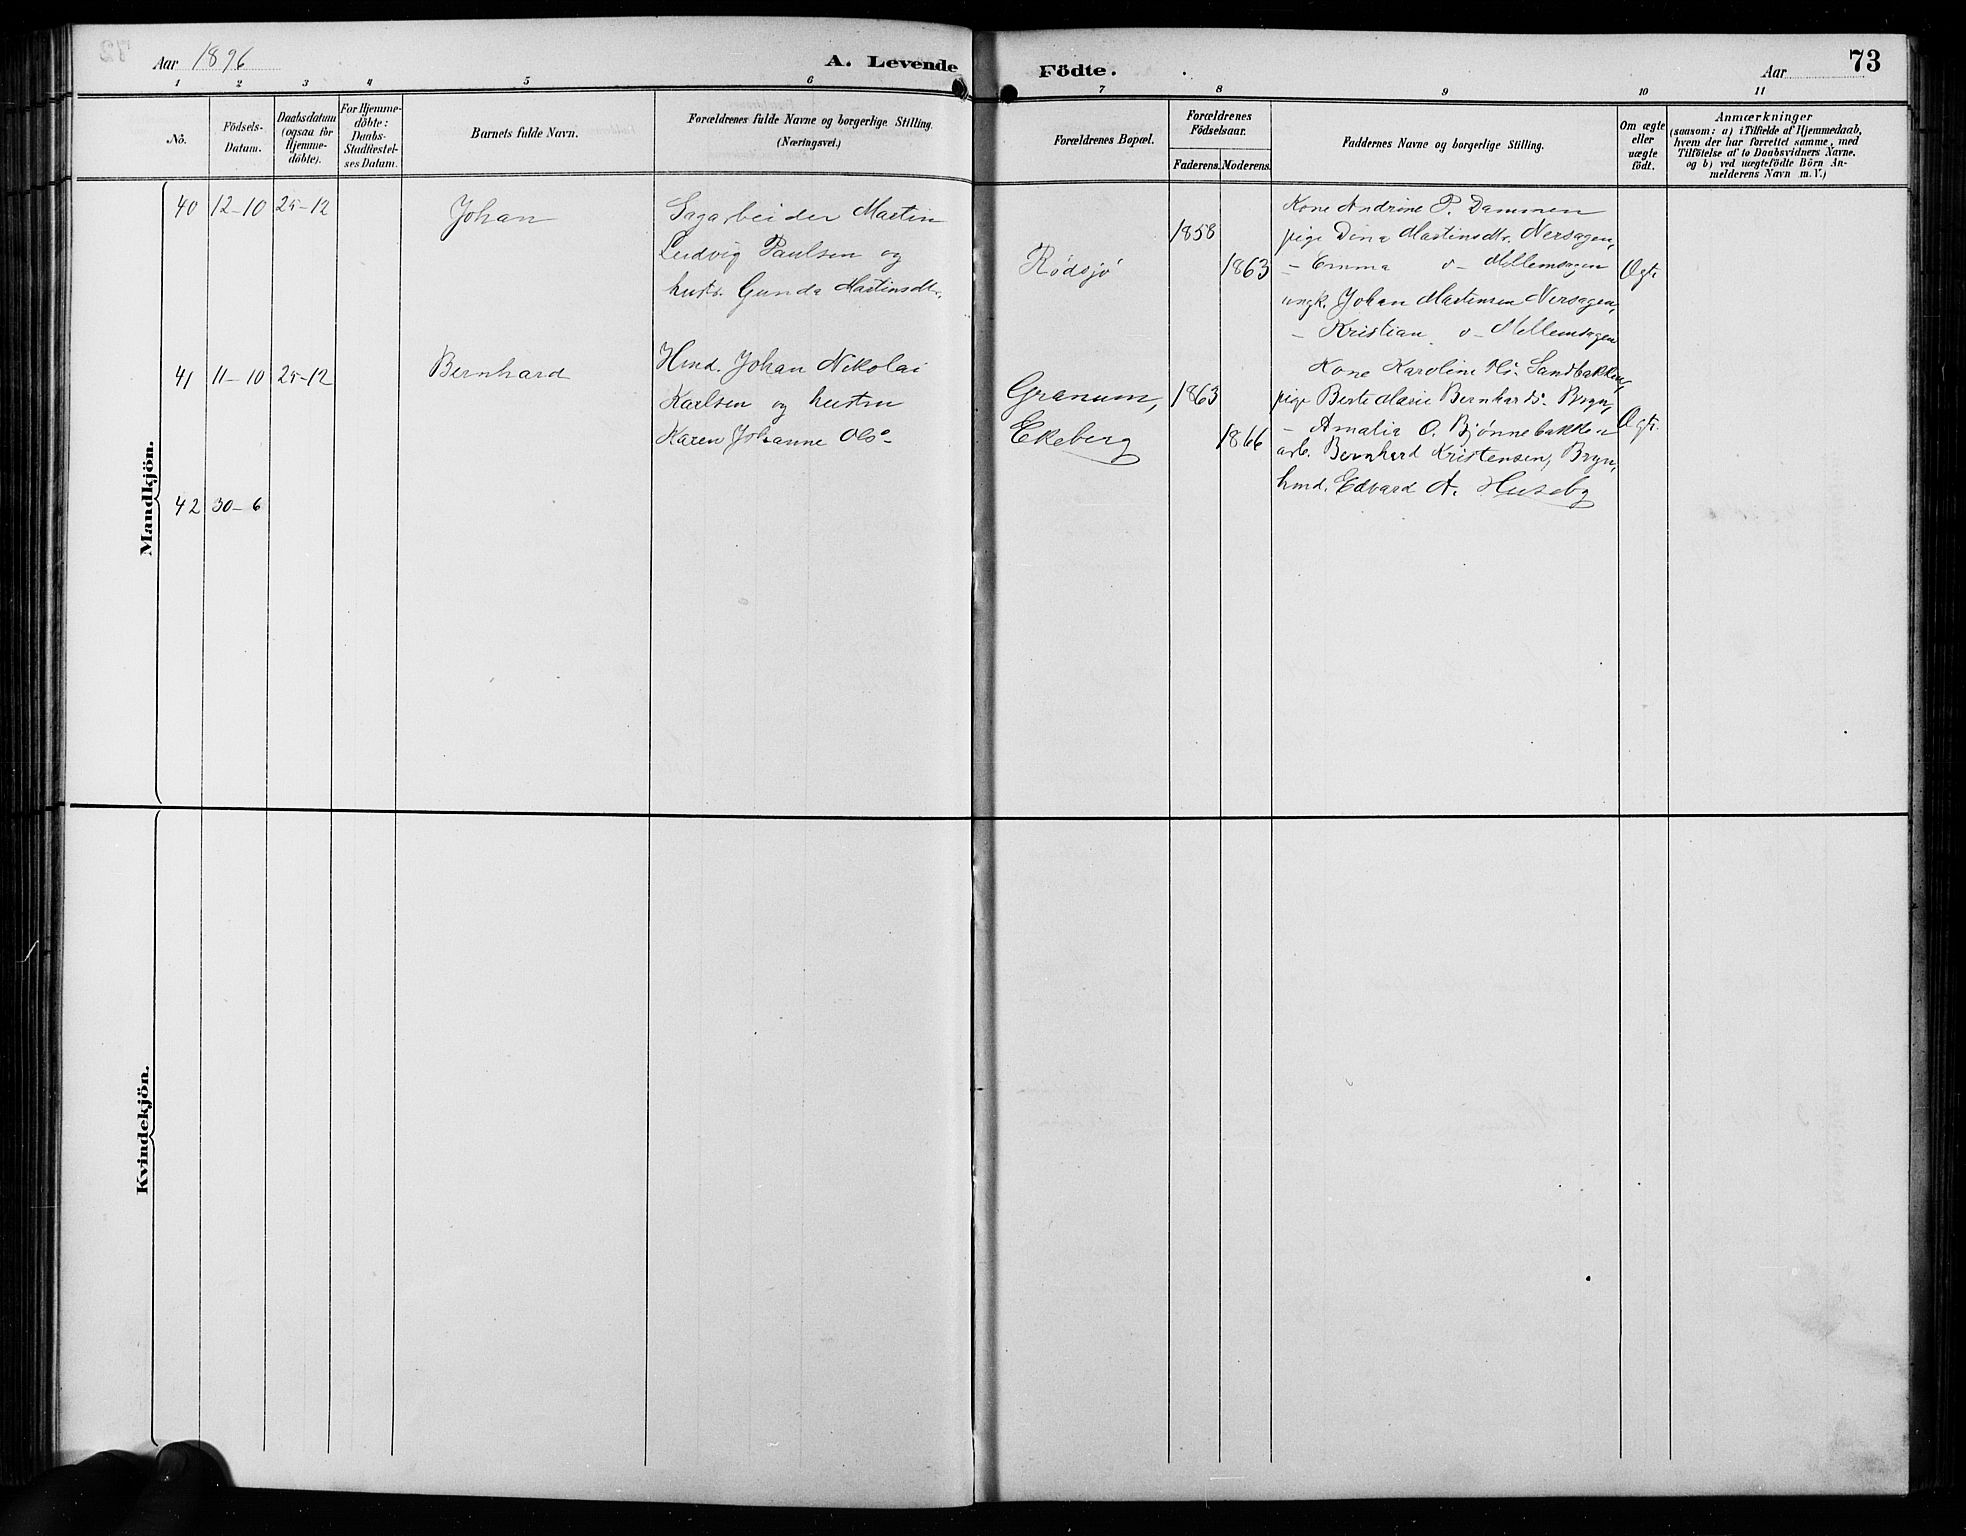 Aar 1896
A. Levende Födte.
Aar
73
1 2 3 4 5 6 7 8 9 10 11
No.
Födsels-
Datum.
Daabsdatum
(ogsaa for
Hjemme-
döbte).
For Hjemme-
döbte:
Daabs-
Stadfæstel-
ses Datum.
Barnets fulde Navn.
Forældrenes fulde Navne og borgerlige Stilling.
(Næringsvei.)
Forældrenes Bopæl.
Forældrenes
Födselsaar.
Faderens. Moderens.
Faddernes Navne og borgerlige Stilling.
Om ægte
eller
uægte
födt.
Anmærkninger
(saasom: a) i Tilfælde af Hjemmedaab,
hvem der har forrettet samme, med
Tilföielse af to Daabsvidners Navne,
og b) ved uægtefödte Börn An-
melderens Navn m. V.)
Mandkjön.
40 12-10 25-12
Johan
Sagarbeider Martin
Ludvig Paulsen og
hustr. Gunda Martinsdtr.
Rødsjø
1858
1863
Kone Andrine P. Dammen
pige Dina Martinsdtr. Nersagen,
– Emma o – Mellemsagen
ungk. Johan Martinsen Nersagen,
– Kristian o – Mellemsagen
Ægte.
41 11-10 25-12
Bernhard
Hmd. Johan Nikolai
Karlsen og hustru
Karen Johanne Ols-
Granum,
Ekeberg
1863
1866
Kone Karoline Sandbakken,
pige Berte Marie Bernhards. Bryn,
– Amalia O. Bjønnebakken
arb. Bernhard Kristensen, Bryn,
hmd. Edvard A. Huseby
Ægte.
42 30-6
Kvindekjön.